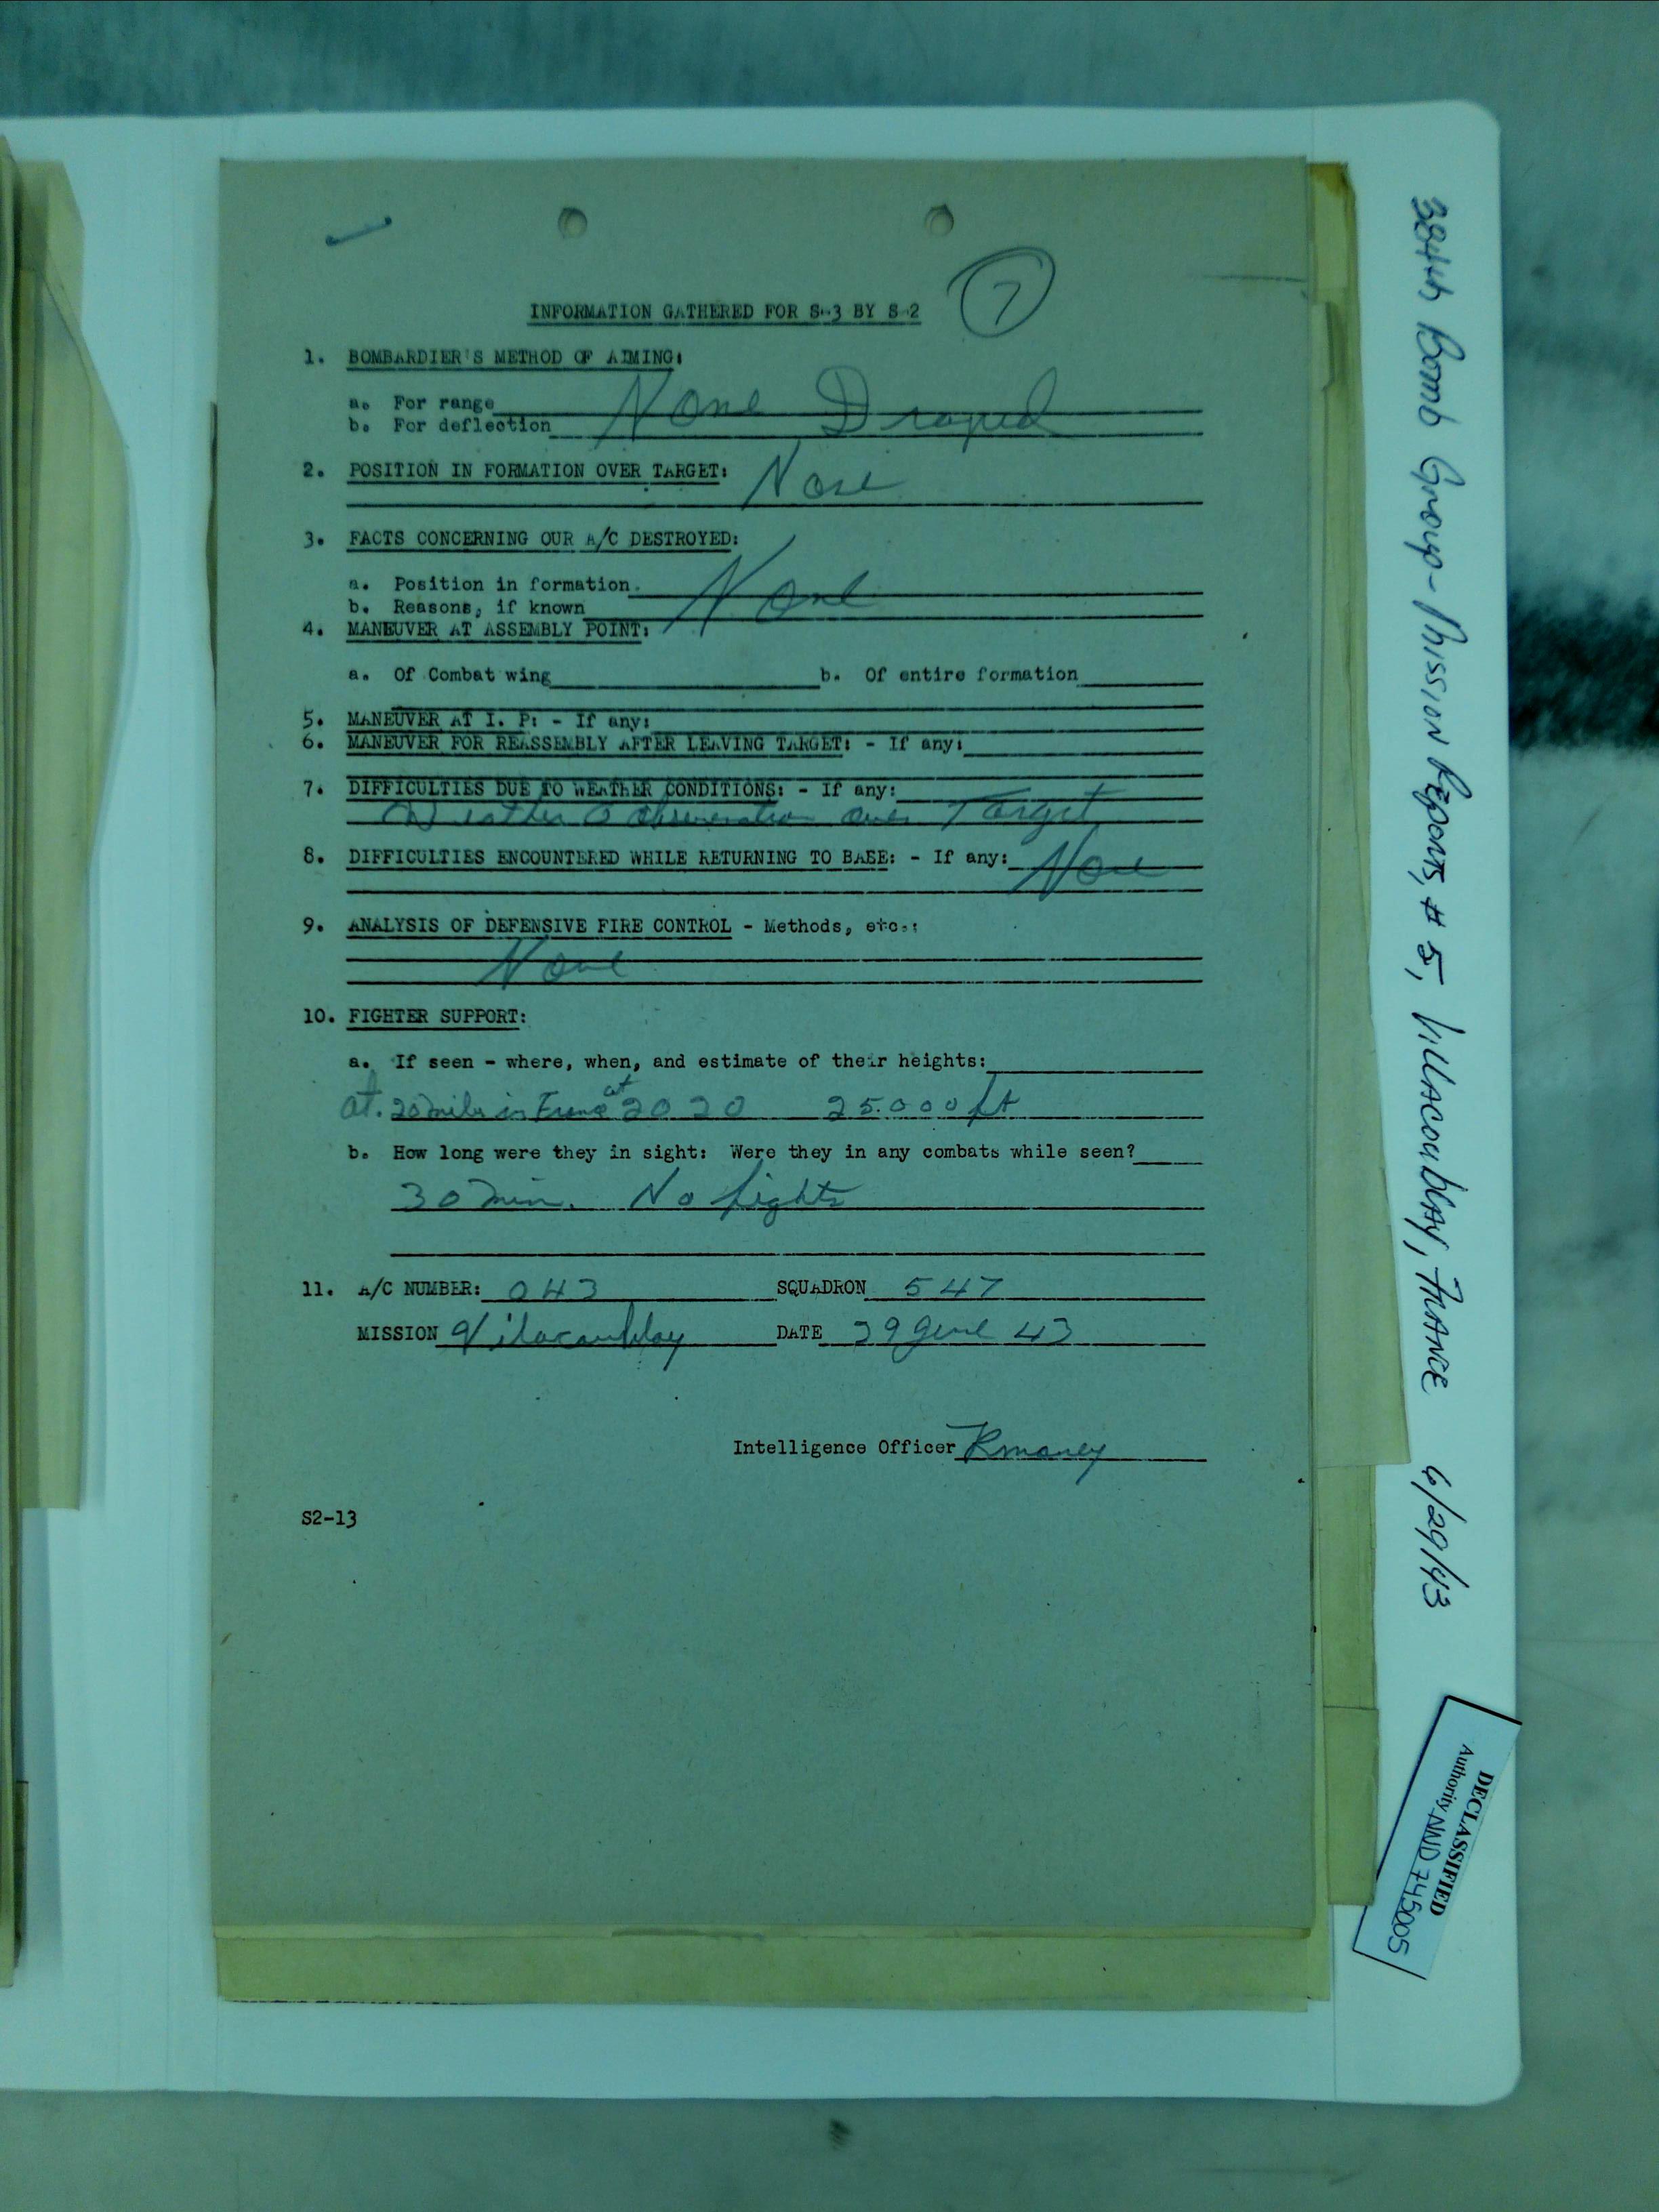 7
INFORMATION GATHERED FOR S-3 BY S-2
1. BOMBARDIER'S METHOD OF AIMING:
a. For range
b. For deflection None Droped
2. POSITION IN FORMATION OVER TARGET:
3. FACTS CONCERNING OUR A/C DESTROYED:
a. Position in formation
b. Reasons, if known None
4. MANEUVER AT ASSEMBLY POINT:
a. Of Combat wing b. Of entire formation
5. MANEUVER AT I. P: - If any:
6. MANEUVER FOR REASSEMBLY AFTER LEAVING TARGET: - If any:
7. DIFFICULTIES DUE TO WEATHER CONDITIONS: - If any:
Weather Observation over Target
8. DIFFICULTIES ENCOUNTERED WHILE RETURNING TO BASE: - If any: None
9. ANALYSIS OF DEFENSIVE FIRE CONTROL - Methods, etc.:
None
10. FIGHTER SUPPORT:
a. If seen - where, when, and estimate of their heights:
at. 20 mile in France at 2020 25.000 ft
b. How long were they in sight: Were they in any combats while seen?
30 min. No fights
11. A/C NUMBER: 043 SQUADRON 547
MISSION Vilacoublay DATE 29 June 43
Intelligence Officer
S2-13
384th Bomb Group - Mission Reports, # 5, Villacoublay, France 6/29/43
DECLASSIFIED
Authority NND 745005